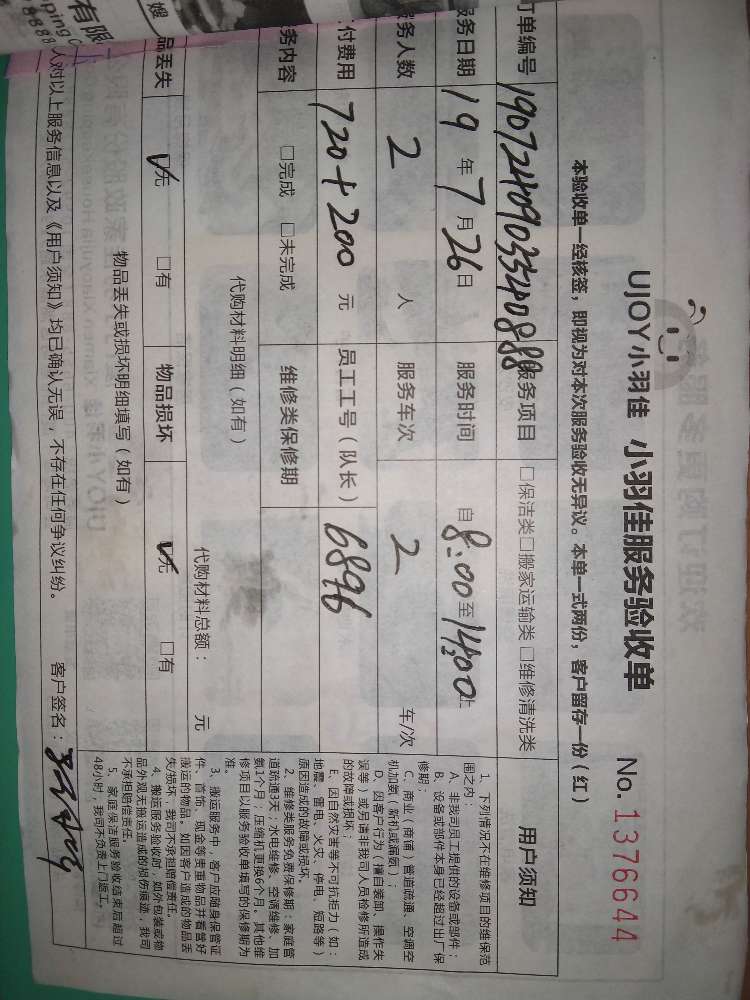 UJOY小羽佳 小羽佳服务验收单 No. 1376644
本验收单一经核签，即视为对本次服务验收无异议。本单一式两份，客户留存一份（红）
订单编号 19072409033540888 服务项目 □保洁类□搬家运输类 □维修清洗类
务日期 19 年 7 月 26 日 服务时间 自 8:00 至 14:00 止
务人数 2 人 服务车次 2 车/次
付费用 720+200 元 员工工号（队长） 6896
务内容 □完成 □未完成 维修类保修期
代购材料明细（如有）
代购材料总额： 元
品丢失 ☑无 □有 物品损坏 ☑无 □有
物品丢失或损坏明细填写（如有）
人对以上服务信息以及《用户须知》均已确认无误，不存在任何争议纠纷。 客户签名：
用户须知
1、下列情况不在维修项目的维保范
围之内：
A、非我司员工提供的设备或部件；
B、设备或部件本身已经超过出厂保
修期；
C、商业（商铺）管道疏通、空调空
机加氨（新机或漏氨）；
D、因客户行为（擅自装卸、操作失
误等）或另请非我司人员检修所造成
的故障或损坏；
E、因自然灾害等不可抗拒力（如：
地震、雷电、火灾、停电、短路等）
原因造成的故障或损坏。
2、维修类服务免费保修期：家庭管
道疏通3天；水电维修、空调维修、加
氨1个月；压缩机更换6个月。其他维
修项目以服务验收单填写的保修期为
准。
3、搬运服务中，客户应随身保管证
件、首饰、现金等贵重物品并看管好
搬运的物品，如因客户造成的物品丢
失/损坏，我司不承担赔偿责任。
4、搬运服务验收时，如外包装或物
品外观无搬运造成的损伤痕迹，我司
不承担赔偿责任。
5、家庭保洁服务验收结束后超过
48小时，我司不负责上门返工。
有限
ping C
8888
嫂